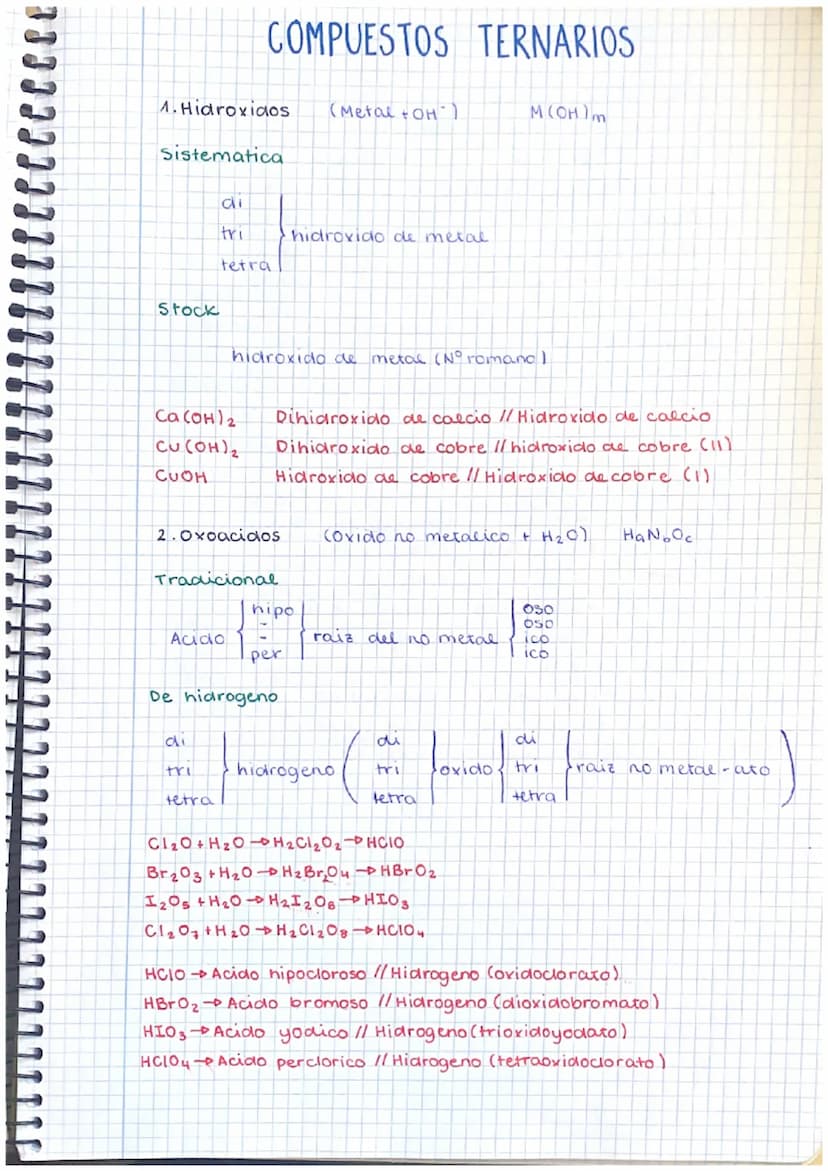 COMPUESTOS TERNARIOS
1. Hidroxidos (Metal + OH⁻) M(OH)m
Sistematica
di
tri } hidroxido de metal
tetra
Stock
hidroxido de metal (Nº romano)
Ca(OH)₂ Dihidroxido de calcio // Hidroxido de calcio
Cu(OH)₂ Dihidroxido de cobre // hidroxido de cobre (II)
CuOH Hidroxido de cobre // Hidroxido de cobre (I)
2. Oxoacidos (Oxido no metalico + H₂O) HaNbOc
Tradicional
hipo oso
- oso
Acido { - } raiz del no metal { ico
per ico
De hidrogeno
di di di
tri } hidrogeno ( tri } oxido { tri } raiz no metal-ato )
tetra tetra tetra
Cl₂O + H₂O → H₂Cl₂O₂ → HClO
Br₂O₃ + H₂O → H₂Br₂O₄ → HBrO₂
I₂O₅ + H₂O → H₂I₂O₆ → HIO₃
Cl₂O₇ + H₂O → H₂Cl₂O₈ → HClO₄
HClO → Acido hipocloroso // Hidrogeno (oxidoclorato)
HBrO₂ → Acido bromoso // Hidrogeno (dioxidobromato)
HIO₃ → Acido yodico // Hidrogeno (trioxidoyodato)
HClO₄ → Acido perclorico // Hidrogeno (tetraoxidoclorato)